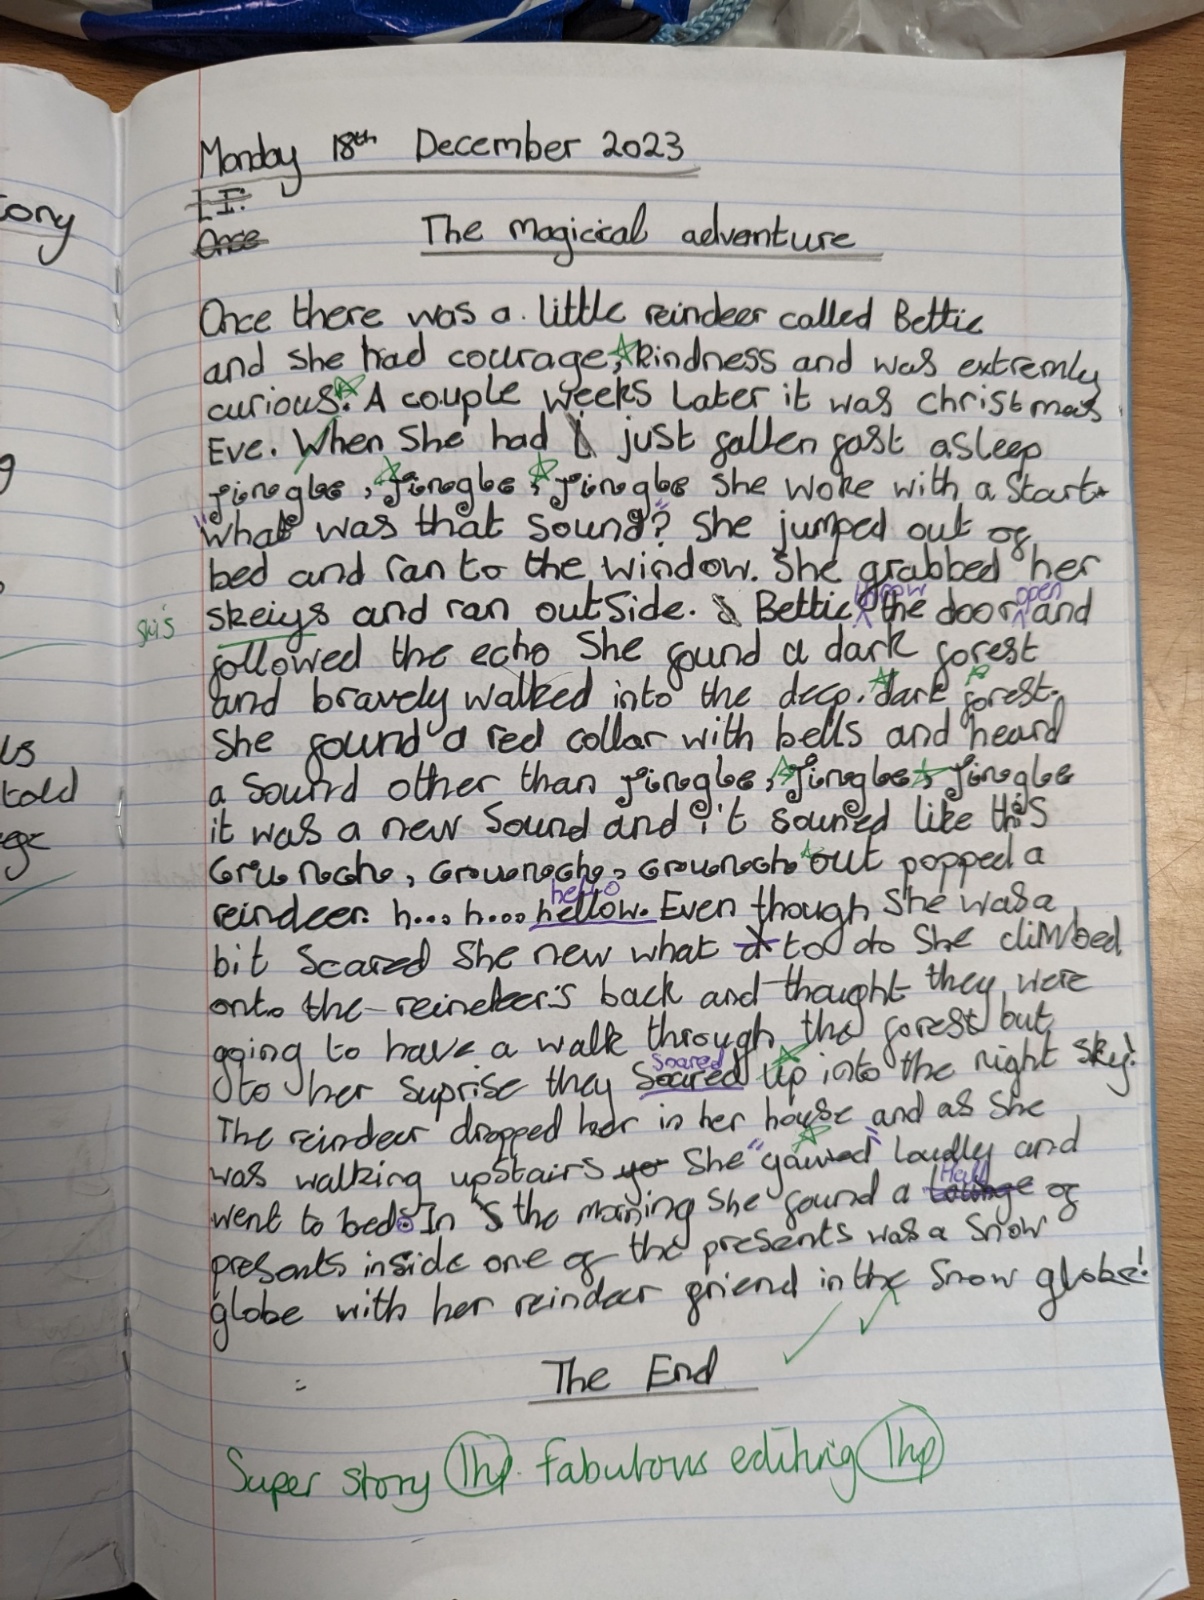 ory
g
us
told
ege
Monday 18th December 2023
L.I:
Once
The magicial adventure
Once there was a little reindeer called Bettie
and she had courage, kindness and was extremly
curious. A couple weeks later it was christmas
Eve. When she had just fallen fast asleep
jingle, jingle, jingle she woke with a start
"what was that sound"? She jumped out of
bed and ran to the window. She grabbed her
throw open
skis skeiys and ran outside. Bettie the door and
followed the echo She found a dark forest
and bravely walked into the deep. dark forest.
She found a red collar with bells and heard
a sound other than jingle, jingle, jingle
it was a new sound and it souned like this
Crunch, Crounch, Crounch out popped a
hello
reindeer. h... h... hellow. Even though she was a
bit scared she new what to do she climbed
onto the reindeer's back and thought they were
going to have a walk through the forest but
Soared
to her suprise they Soared up into the night sky!
The reindeer dropped her in her house and as she
was walking upstairs yo she "yawned" loudly and
Hall
went to bed. In the morning she found a of
presents inside one of the presents was a snow
globe with her reindeer friend in the snow globe!
The End
Super story 1hp. fabulous editing 1hp